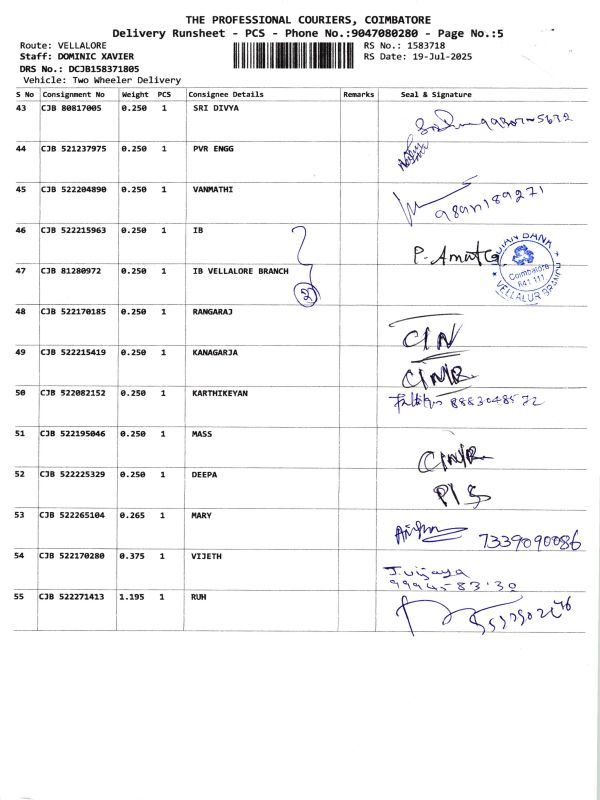 THE PROFESSIONAL COURIERS, COIMBATORE
Delivery Runsheet - PCS - Phone No.:9047080280 - Page No.:5
Route: VELLALORE RS No.: 1583718
Staff: DOMINIC XAVIER RS Date: 19-Jul-2025
DRS No.: DCJB158371805
Vehicle: Two Wheeler Delivery
S No Consignment No Weight PCS Consignee Details Remarks Seal & Signature
43 CJB 80817005 0.250 1 SRI DIVYA
44 CJB 521237975 0.250 1 PVR ENGG
45 CJB 522204890 0.250 1 VANMATHI
46 CJB 522215963 0.250 1 IB
P. Amutha
47 CJB 81280972 0.250 1 IB VELLALORE BRANCH
2
BANK
Coimbatore
641 111
VELLALUR BRANCH
48 CJB 522170185 0.250 1 RANGARAJ
C/N
49 CJB 522215419 0.250 1 KANAGARJA
C/N/R
50 CJB 522082152 0.250 1 KARTHIKEYAN
8883048572
51 CJB 522195046 0.250 1 MASS
C/N/R
52 CJB 522225329 0.250 1 DEEPA
P/S
53 CJB 522265104 0.265 1 MARY
7339090086
54 CJB 522170280 0.375 1 VIJETH
J. vijaya
55 CJB 522271413 1.195 1 RUH